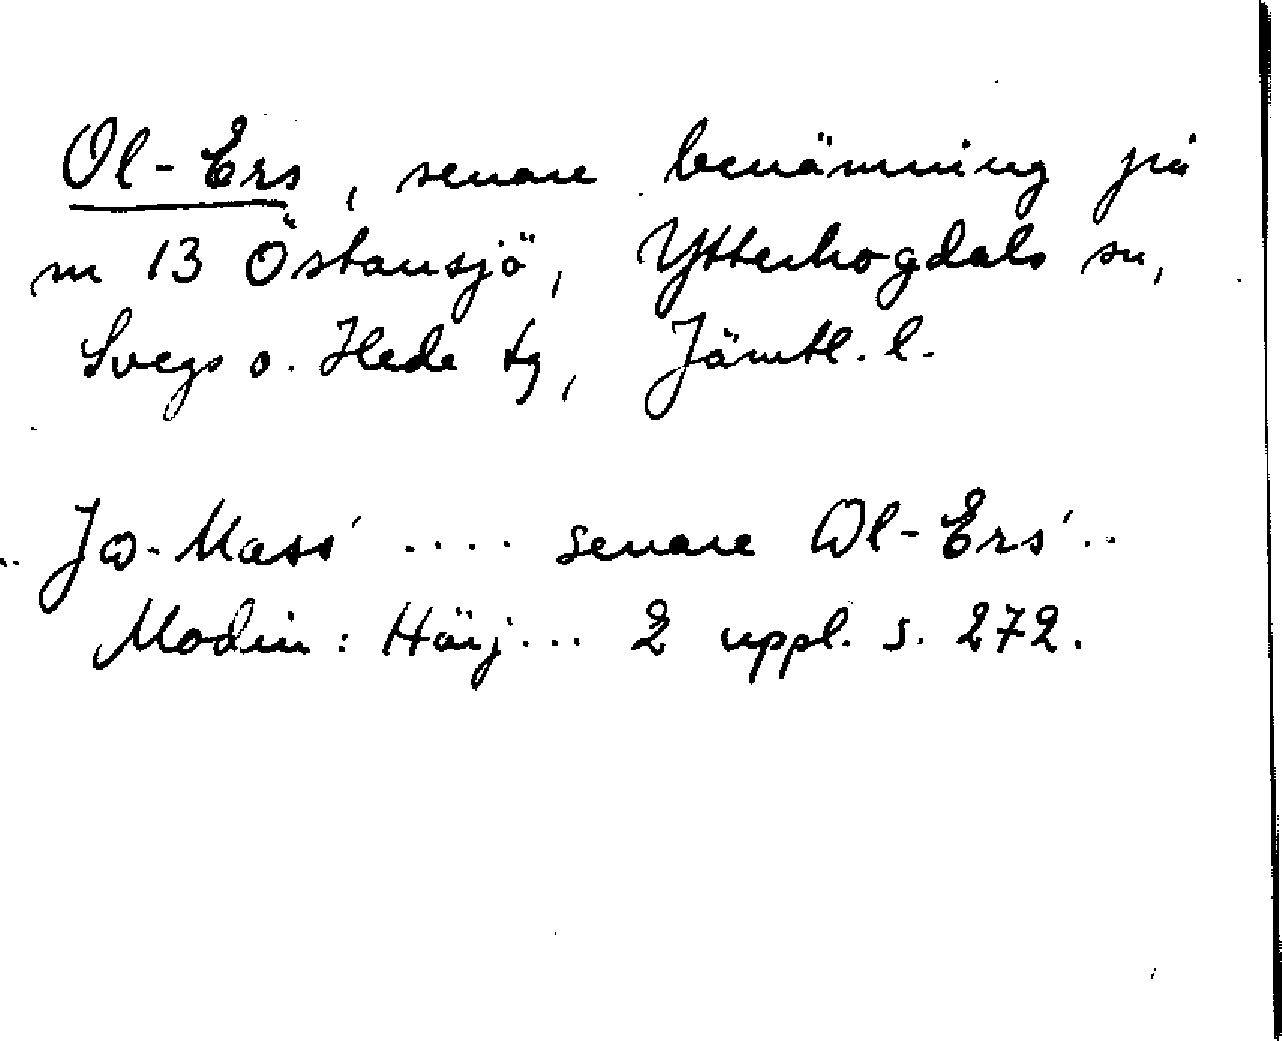 Ol-Ers, senare benämning på
nr 13 Östansjö, Ytterhogdals sn,
Svegs o. Hede tg, Jämtl. l.
.. Jo-Mass' .... senare Ol-Ers' ..
Modin: Härj... 2 uppl. s. 272.